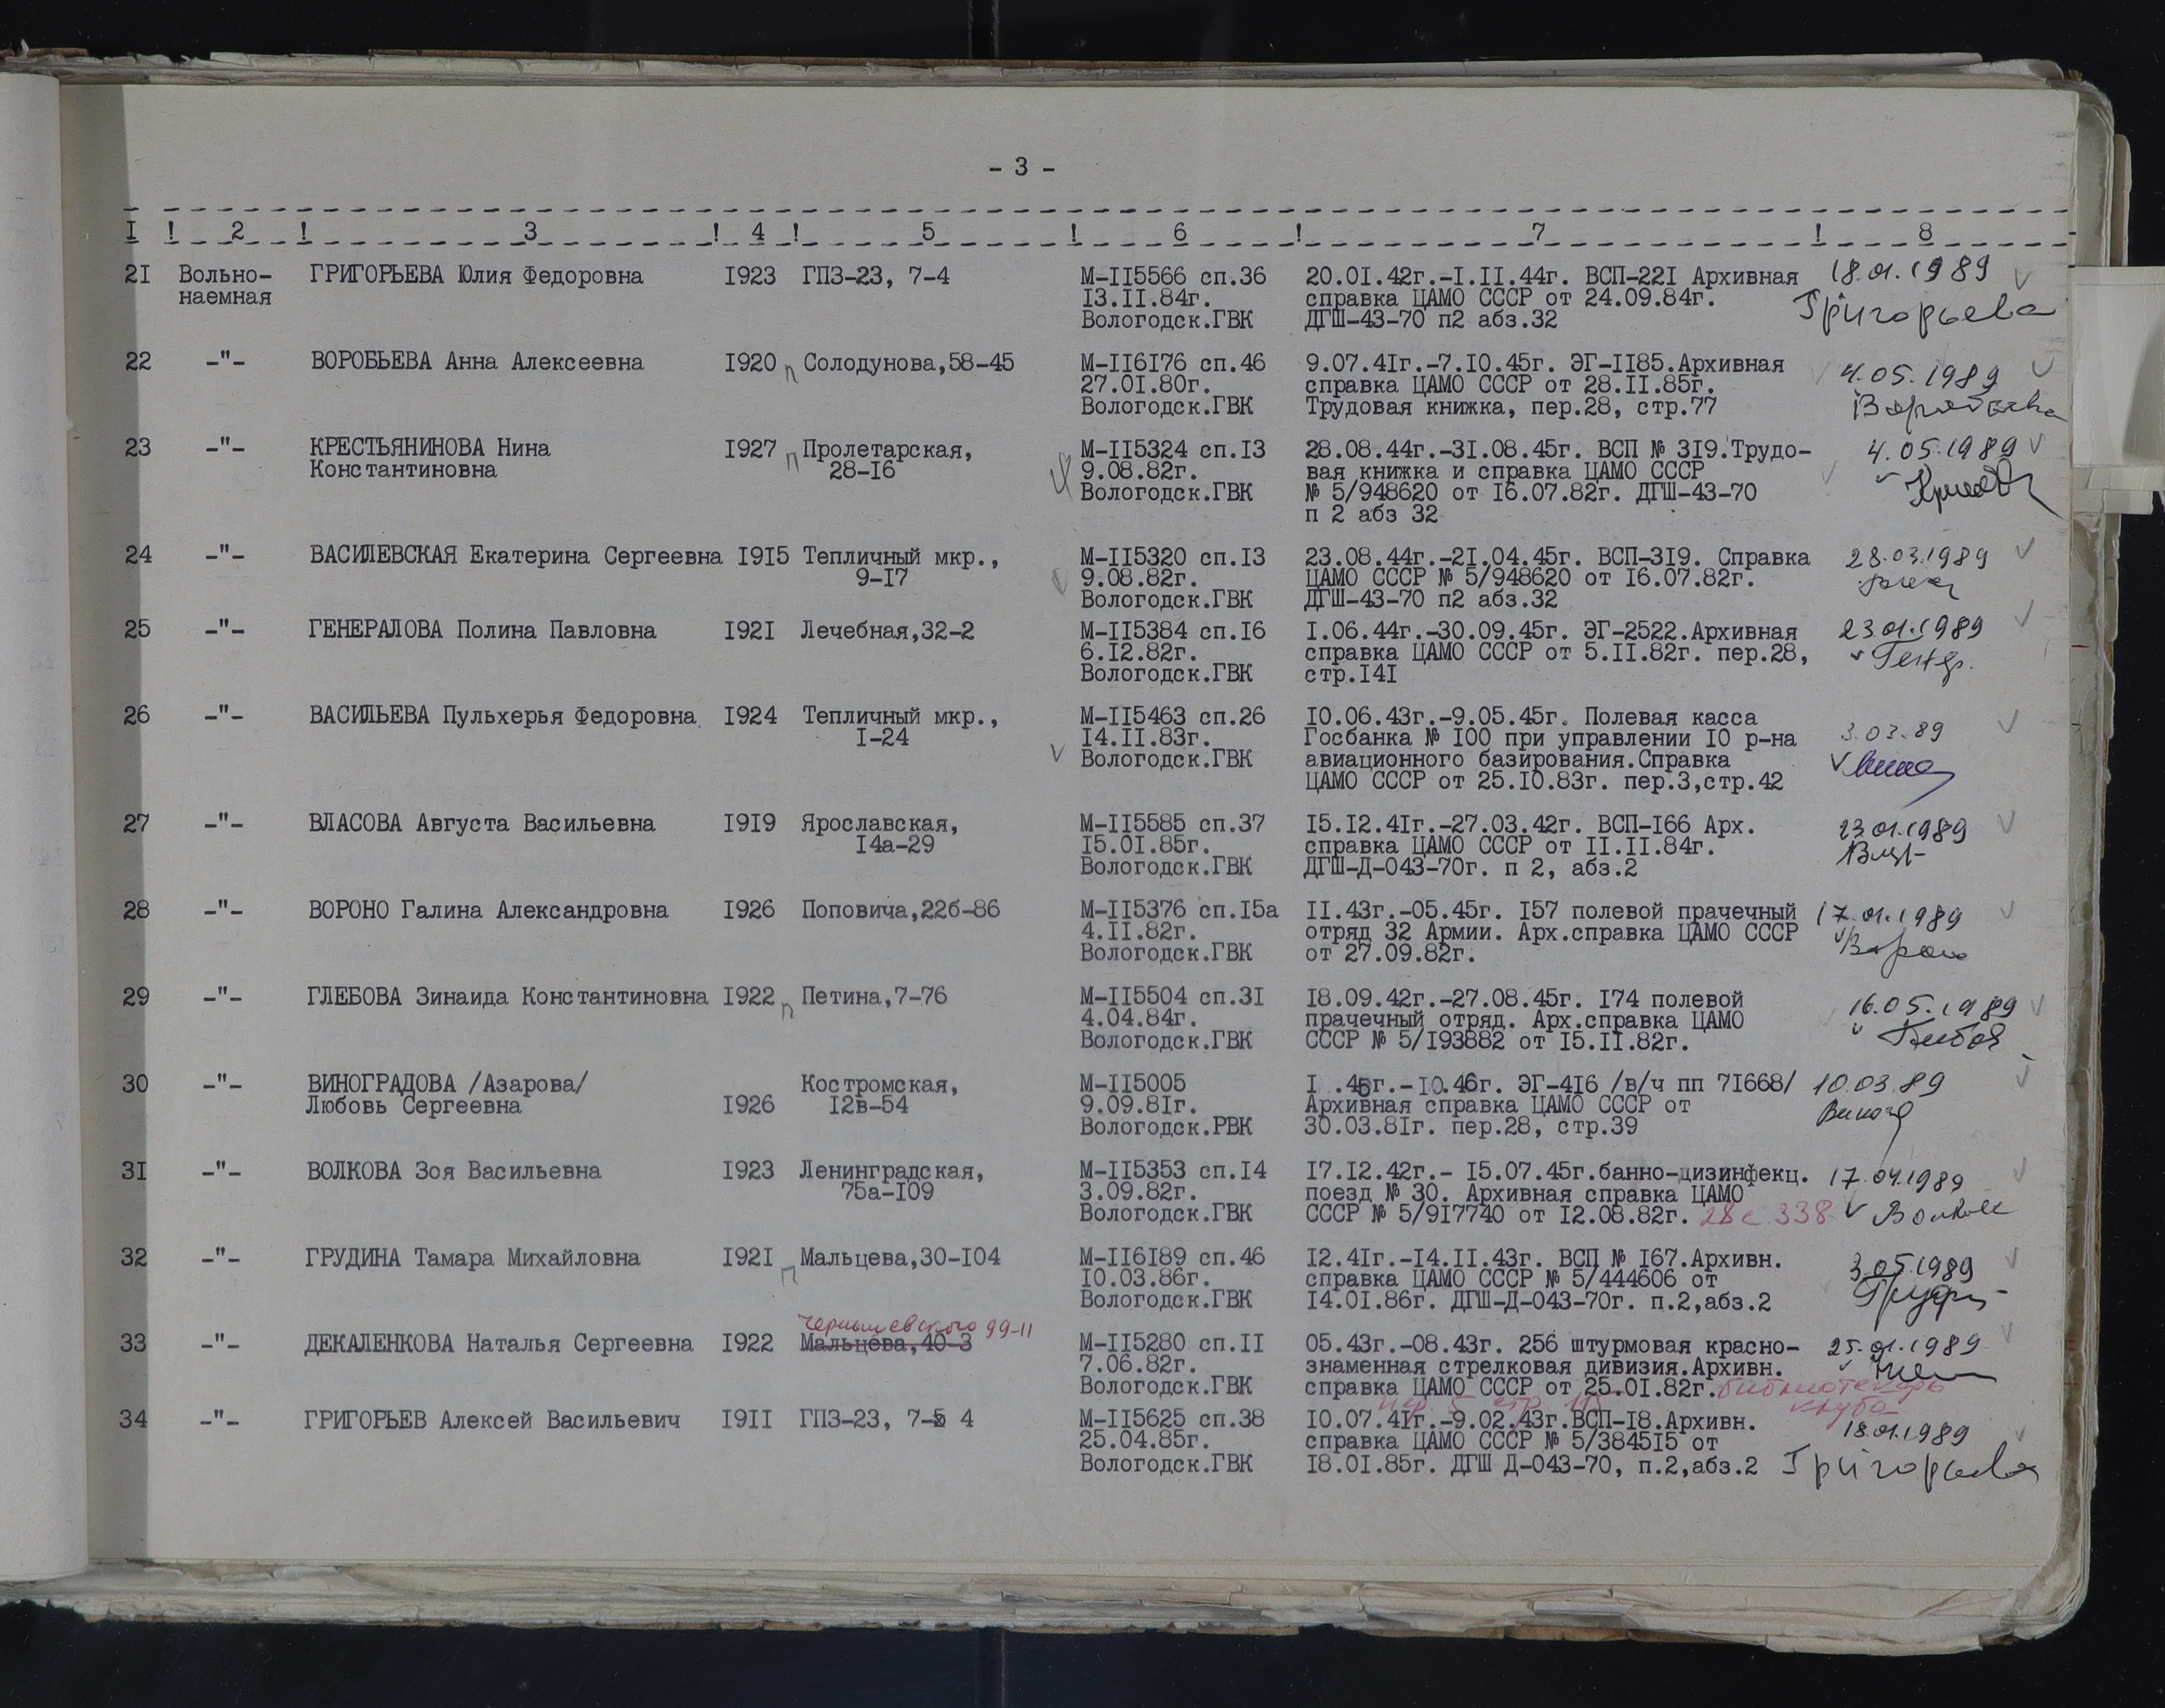 - 3 -
I ! 2 ! 3 ! 4 ! 5 ! 6 ! 7 ! 8
2I Вольно- ГРИГОРЬЕВА Юлия Федоровна I923 ГПЗ-23, 7-4 М-II5566 сп.36 20.0I.42г.-I.II.44г. ВСП-22I Архивная 18.01.1989
наемная I3.II.84г. справка ЦАМО СССР от 24.09.84г. Григорьева
Вологодск.ГВК ДГШ-43-70 п2 абз.32
22 -"- ВОРОБЬЕВА Анна Алексеевна I920 п Солодунова,58-45 М-II6I76 сп.46 9.07.4Iг.-7.I0.45г. ЭГ-II85.Архивная 4.05.1989
27.0I.80г. справка ЦАМО СССР от 28.II.85г.
Вологодск.ГВК Трудовая книжка, пер.28, стр.77 Воробьева
23 -"- КРЕСТЬЯНИНОВА Нина I927 п Пролетарская, М-II5324 сп.I3 28.08.44г.-3I.08.45г. ВСП № 3I9.Трудо- 4.05.1989
Константиновна 28-I6 9.08.82г. вая книжка и справка ЦАМО СССР
Вологодск.ГВК № 5/948620 от I6.07.82г. ДГШ-43-70
п 2 абз 32
24 -"- ВАСИЛЕВСКАЯ Екатерина Сергеевна I9I5 Тепличный мкр., М-II5320 сп.I3 23.08.44г.-2I.04.45г. ВСП-3I9. Справка 28.03.1989
9-I7 9.08.82г. ЦАМО СССР № 5/948620 от I6.07.82г.
Вологодск.ГВК ДГШ-43-70 п2 абз.32
25 -"- ГЕНЕРАЛОВА Полина Павловна I92I Лечебная,32-2 М-II5384 сп.I6 I.06.44г.-30.09.45г. ЭГ-2522.Архивная 23.01.1989
6.I2.82г. справка ЦАМО СССР от 5.II.82г. пер.28,
Вологодск.ГВК стр.I4I
26 -"- ВАСИЛЬЕВА Пульхерья Федоровна I924 Тепличный мкр., М-II5463 сп.26 I0.06.43г.-9.05.45г. Полевая касса 3.03.89
I-24 I4.II.83г. Госбанка № I00 при управлении I0 р-на
Вологодск.ГВК авиационного базирования.Справка
ЦАМО СССР от 25.I0.83г. пер.3,стр.42
27 -"- ВЛАСОВА Августа Васильевна I9I9 Ярославская, М-II5585 сп.37 I5.I2.4Iг.-27.03.42г. ВСП-I66 Арх. 23.01.1989
I4а-29 I5.0I.85г. справка ЦАМО СССР от II.II.84г.
Вологодск.ГВК ДГШ-Д-043-70г. п 2, абз.2
28 -"- ВОРОНО Галина Александровна I926 Поповича,22б-86 М-II5376 сп.I5а II.43г.-05.45г. I57 полевой прачечный 17.01.1989
4.II.82г. отряд 32 Армии. Арх.справка ЦАМО СССР Вороно
Вологодск.ГВК от 27.09.82г.
29 -"- ГЛЕБОВА Зинаида Константиновна I922 п Петина,7-76 М-II5504 сп.3I I8.09.42г.-27.08.45г. I74 полевой 16.05.1989
4.04.84г. прачечный отряд. Арх.справка ЦАМО
Вологодск.ГВК СССР № 5/I93882 от I5.II.82г.
30 -"- ВИНОГРАДОВА /Азарова/ Костромская, М-II5005 I .45г.-I0.46г. ЭГ-4I6 /в/ч пп 7I668/ 10.03.89
Любовь Сергеевна I926 I2в-54 9.09.8Iг. Архивная справка ЦАМО СССР от
Вологодск.РВК 30.03.8Iг. пер.28, стр.39
3I -"- ВОЛКОВА Зоя Васильевна I923 Ленинградская, М-II5353 сп.I4 I7.I2.42г.- I5.07.45г.банно-дизинфекц. 17.04.1989
75а-I09 3.09.82г. поезд № 30. Архивная справка ЦАМО
Вологодск.ГВК СССР № 5/9I7740 от I2.08.82г. 28 с 338
32 -"- ГРУДИНА Тамара Михайловна I92I п Мальцева,30-I04 М-II6I89 сп.46 I2.4Iг.-I4.II.43г. ВСП № I67.Архивн. 3.05.1989
I0.03.86г. справка ЦАМО СССР № 5/444606 от
Вологодск.ГВК I4.0I.86г. ДГШ-Д-043-70г. п.2,абз.2
Чернышевского 99-11
33 -"- ДЕКАЛЕНКОВА Наталья Сергеевна I922 Мальцева,40-3 М-II5280 сп.II 05.43г.-08.43г. 256 штурмовая красно- 25.01.1989
7.06.82г. знаменная стрелковая дивизия.Архивн.
Вологодск.ГВК справка ЦАМО СССР от 25.0I.82г. библиотекарь
пер. 5 стр. клуба
34 -"- ГРИГОРЬЕВ Алексей Васильевич I9II ГПЗ-23, 7-5 4 М-II5625 сп.38 I0.07.4Iг.-9.02.43г.ВСП-I8.Архивн. 18.01.1989
25.04.85г. справка ЦАМО СССР № 5/3845I5 от
Вологодск.ГВК I8.0I.85г. ДГШ Д-043-70, п.2,абз.2 Григорьева